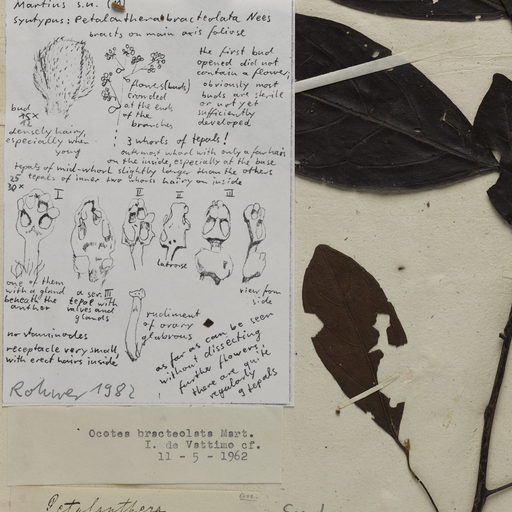 Martius s.n. (
syntypus: Petalanthera bracteolata Nees
bracts on main axis foliose
the first bud
opened did not
contain a flower,
obviously most
buds are sterile
or not yet
sufficiently
developed
flowers (buds)
crowded
at the ends
of the
branches
bud
15x
12
densely hairy,
especially when
young
3 whorls of tepals!
outmost whorl with only a few hairs
on the inside, especially at the base
tepals of mid-whorl slightly longer than the others
25 tepals of inner two whorls hairy on inside
30x
I
II
II
III
latrorse
one of them
with a gland
beneath the
anther
a ser. III
tepal with
valves and
glands
view from
side
rudiment
of ovary
glabrous
no staminodes
receptacle very small,
with erect hairs inside
as far as can be seen
without dissecting
further flowers:
there are quite
regularly 9 tepals
Rohwer 1982
Ocotea bracteolata Mart.
I. de Vattimo cf.
11 - 5 - 1962
Petalanthera